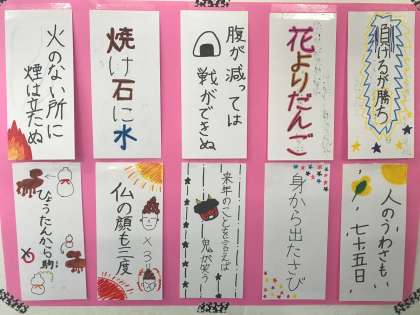 負けるが勝ち
花よりだんご
腹が減っては
戦ができぬ
焼け石に水
火のない所に
煙は立たぬ
人のうわさも
七十五日
身から出たさび
来年のことを言えば
鬼が笑う
仏の顔も三度
×3
ひょうたんから駒